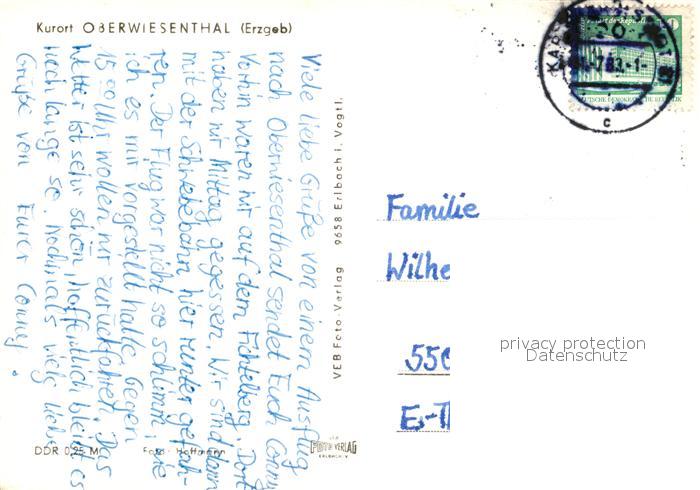 Kurort OBERWIESENTHAL (Erzgeb)
Viele liebe Grüße von einem Ausflug
nach Oberwiesenthal sendet Euch Conny
Vorhin waren wir auf dem Fichtelberg. Dort
haben wir Mittag gegessen. Wir sind dann
mit der Schwebebahn hier runter gefah-
ren. Der Flug war nicht so schlimm, wie
ich es mir vorgestellt hatte. Gegen
15.00 Uhr wollen wir zurückfahren. Das
Wetter ist sehr schön, hoffentlich bleibt es
noch lange so. Nochmals viele liebe
Grüße von Eurer Conny.
DDR 0,25 M
Foto: Hoffmann
VEB Foto-Verlag 9658 Erlbach i. Vogtl.
FOTO VERLAG
ERLBACH V
DEUTSCHE DEMOKRATISCHE REPUBLIK
c
Familie
Wilhe
550
privacy protection
Datenschutz